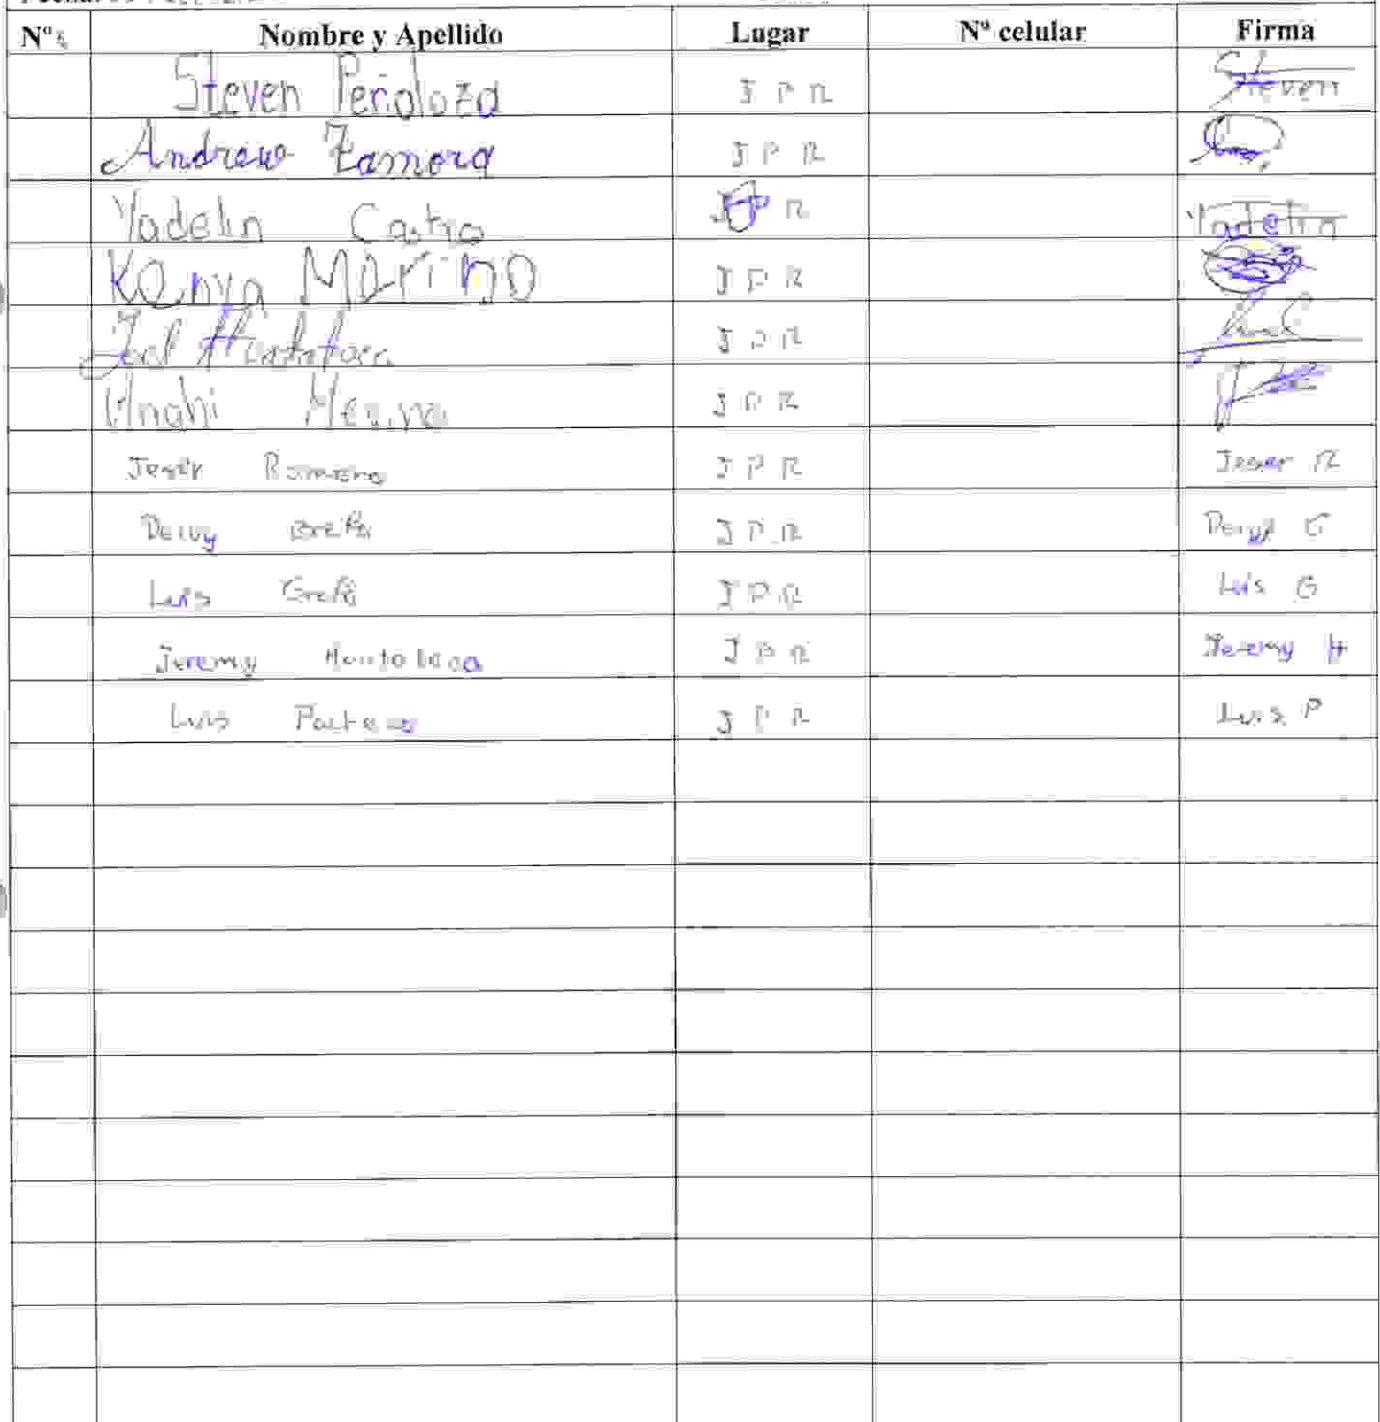 Nº Nombre y Apellido Lugar Nº celular Firma
Steven Peñaloza J P R Steven
Andrew Zamora J P R
Yadelin Castro J P R Yadelin
Kenya Merino J P R
J P R
Anahi Merino J P R
Jeser Romero J P R Jeser R
Deivy J P R Deivy G
Luis J P R Luis G
Jeremy J P R Jeremy H
Luis J P R Luis P